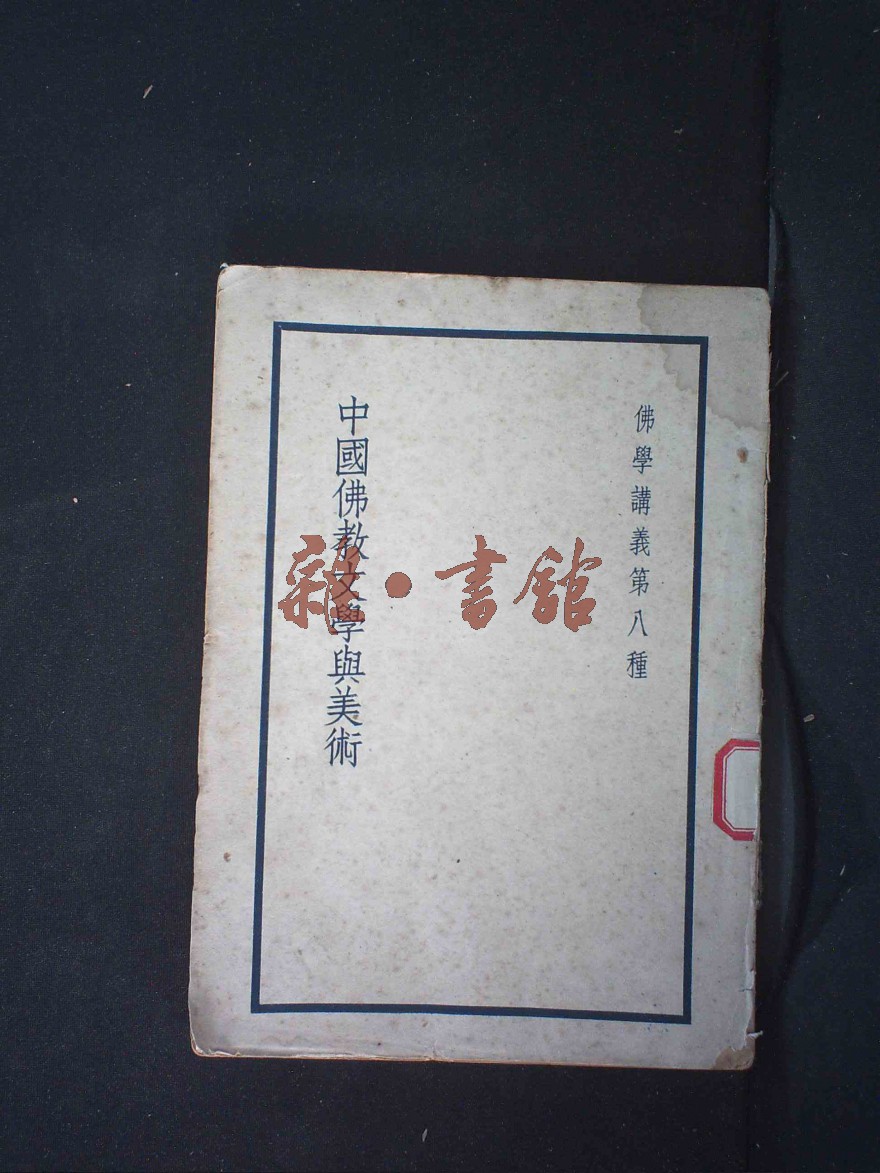 佛學講義第八種
中國佛教文學與美術
雜·書館